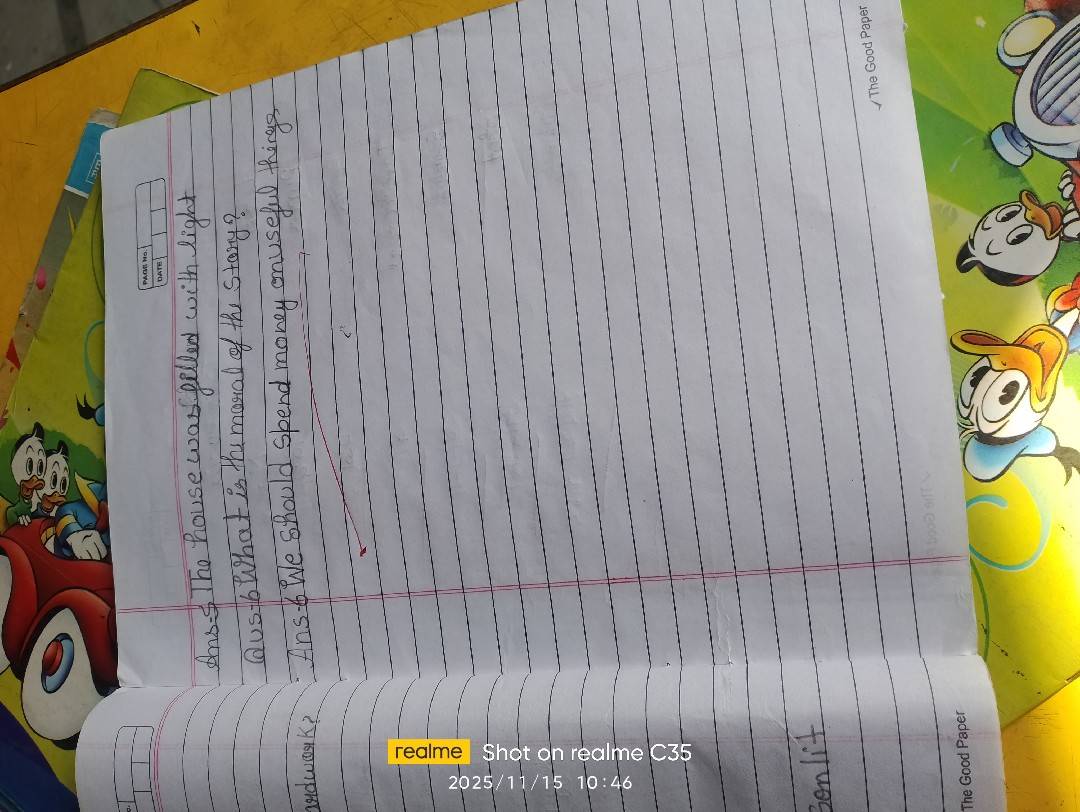 PAGE No.
DATE
Ans-5 The house was filled with light
Qus-6 What is the moral of the story?
Ans-6 We should spend money on useful things
✓The Good Paper
ardwork?
The Good Paper
realme Shot on realme C35
2025/11/15 10:46